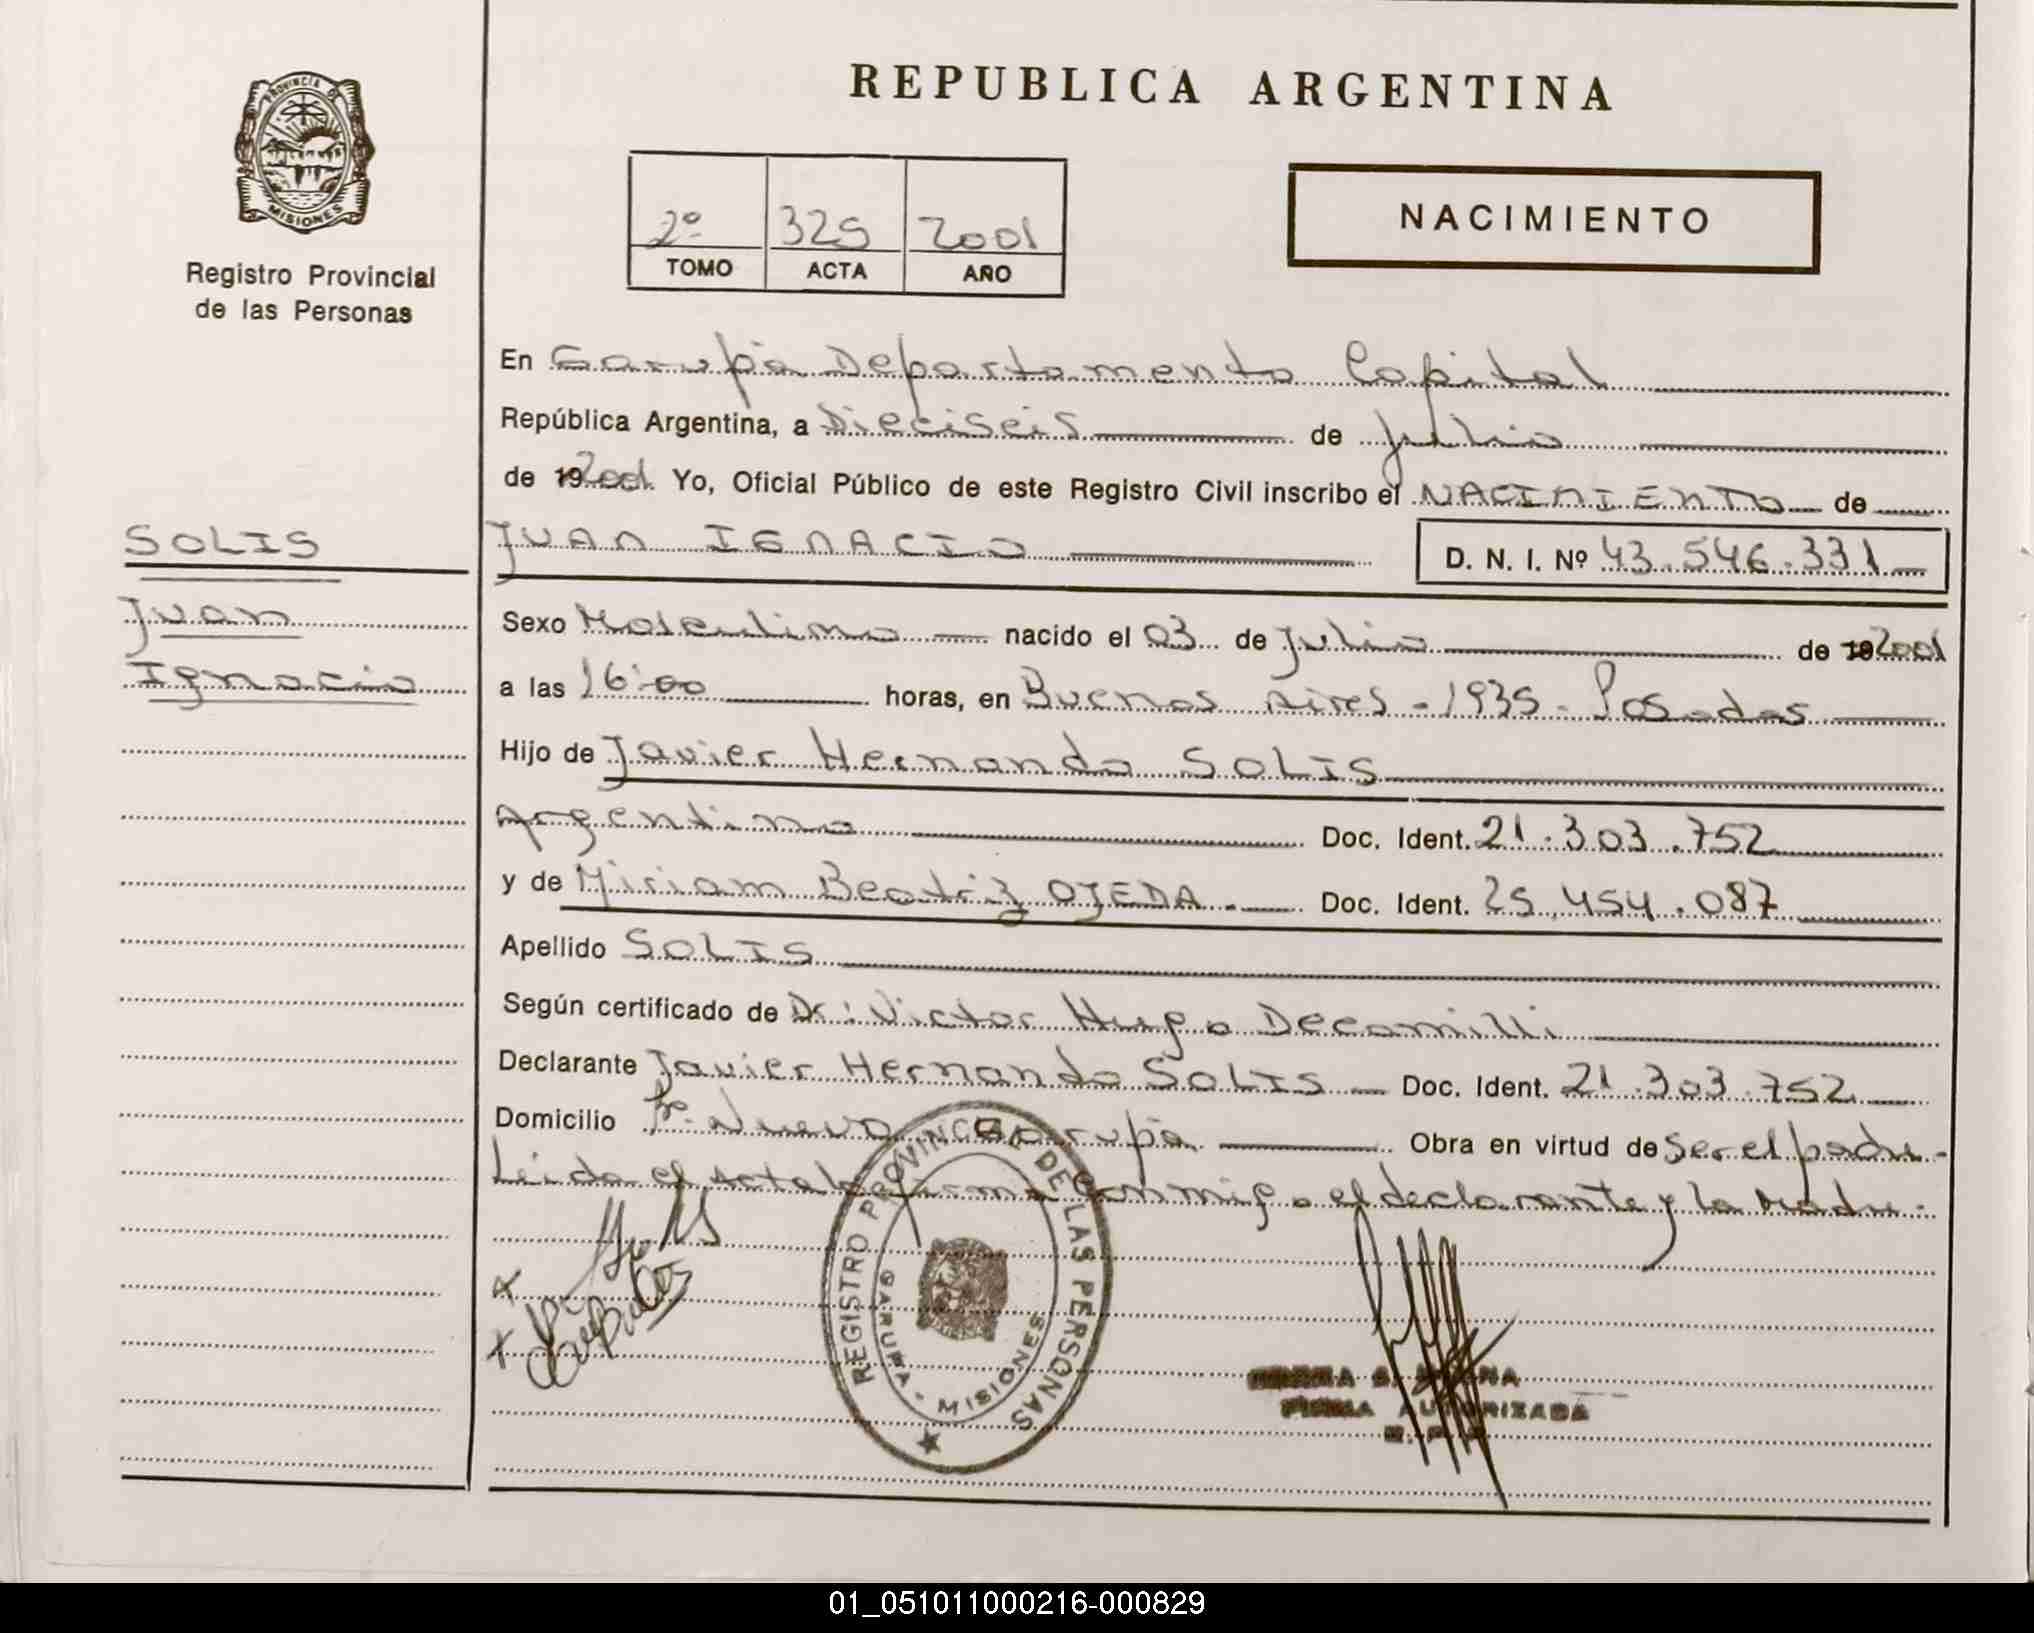 REPUBLICA ARGENTINA
PROVINCIA DE
MISIONES
Registro Provincial
de las Personas
2º 325 2001
TOMO ACTA AÑO
NACIMIENTO
En Garupá Departamento Capital
República Argentina, a Dieciseis de Julio
de 19 2001 Yo, Oficial Público de este Registro Civil inscribo el NACIMIENTO de
SOLIS
JUAN IGNACIO D. N. I. Nº 43.546.331
Juan
Ignacio
Sexo Masculino nacido el 03 de Julio de 19 2001
a las 16:00 horas, en Buenos Aires - 1935 - Posadas
Hijo de Javier Hernando SOLIS
Argentino Doc. Ident. 21.303.752
y de Miriam Beatriz OJEDA.- Doc. Ident. 25.454.087
Apellido SOLIS
Según certificado de Dr: Victor Hugo Decamilli
Declarante Javier Hernando SOLIS Doc. Ident. 21.303.752
Domicilio Nuevo Garupá Obra en virtud de Ser el padre.-
Leida el acta la firma conmigo el declarante y la Madre.-
REGISTRO PROVINCIAL DE LAS PERSONAS
GARUPA - MISIONES
FIRMA AUTORIZADA
01_051011000216-000829